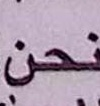 نحن